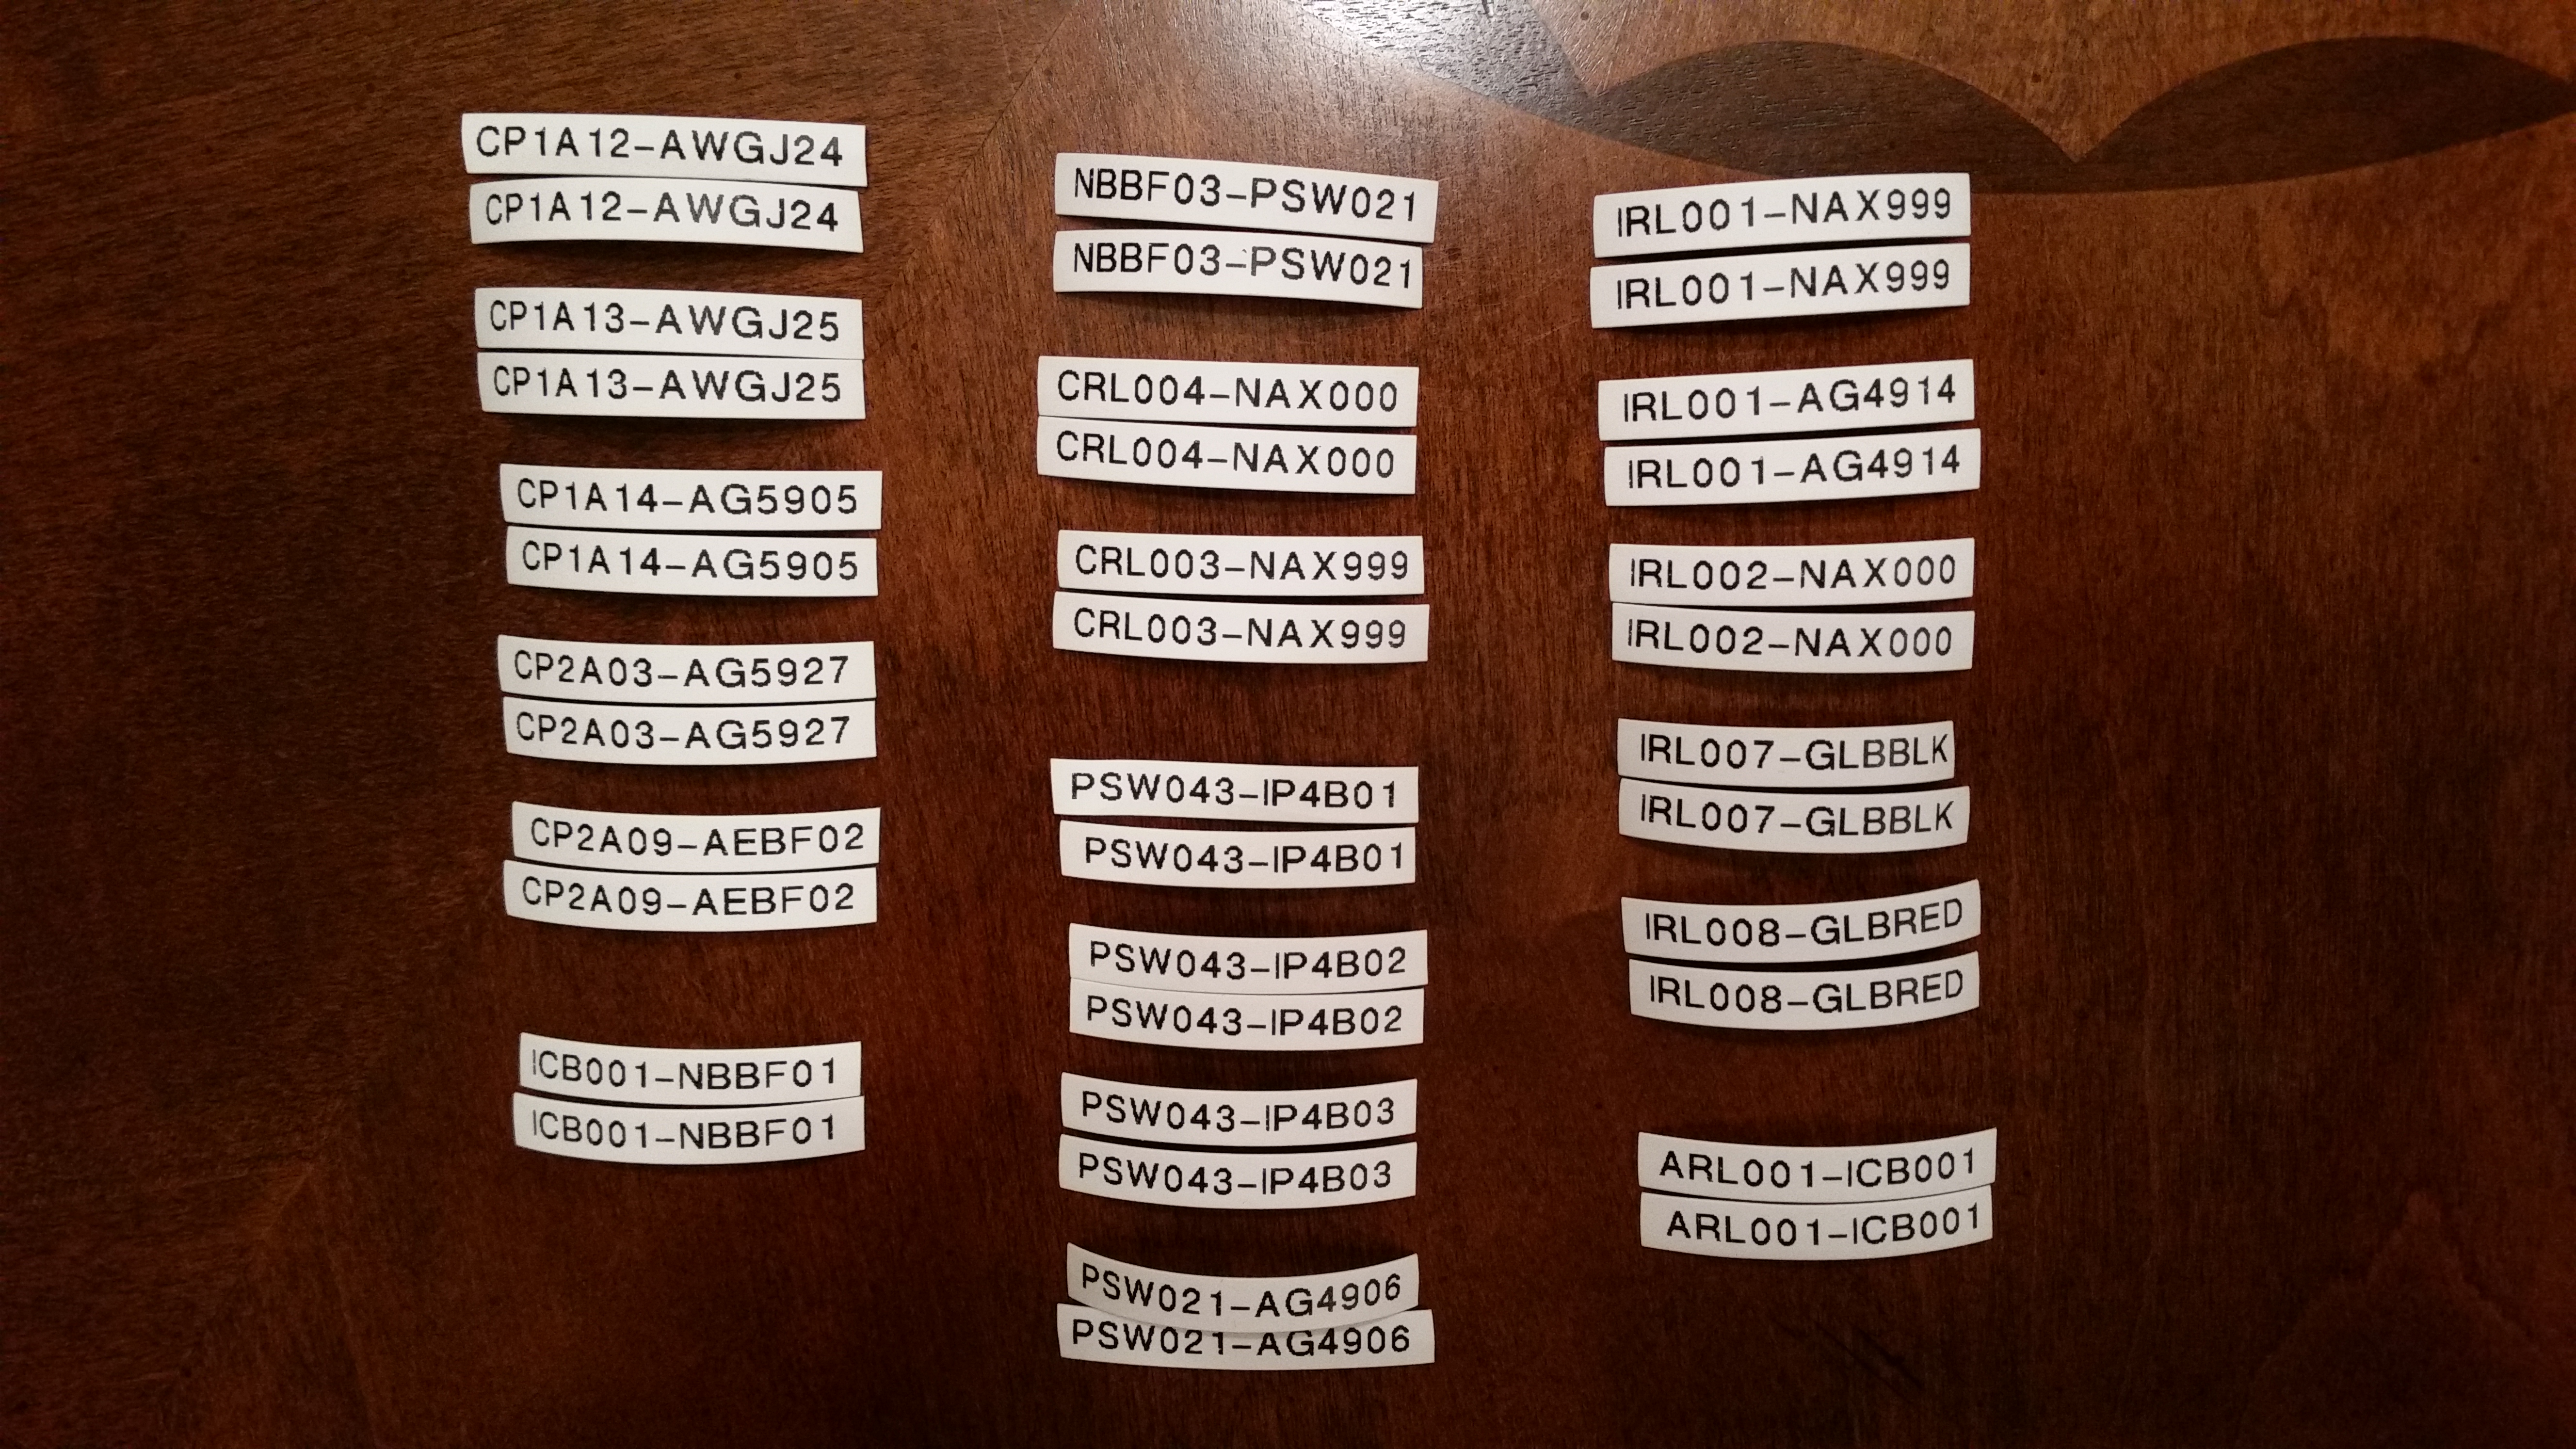 CP1A12-AWGJ24
CP1A12-AWGJ24
CP1A13-AWGJ25
CP1A13-AWGJ25
CP1A14-AG5905
CP1A14-AG5905
CP2A03-AG5927
CP2A03-AG5927
CP2A09-AEBF02
CP2A09-AEBF02
ICB001-NBBF01
ICB001-NBBF01
NBBF03-PSW021
NBBF03-PSW021
CRL004-NAX000
CRL004-NAX000
CRL003-NAX999
CRL003-NAX999
PSW043-IP4B01
PSW043-IP4B01
PSW043-IP4B02
PSW043-IP4B02
PSW043-IP4B03
PSW043-IP4B03
PSW021-AG4906
PSW021-AG4906
IRL001-NAX999
IRL001-NAX999
IRL001-AG4914
IRL001-AG4914
IRL002-NAX000
IRL002-NAX000
IRL007-GLBBLK
IRL007-GLBBLK
IRL008-GLBRED
IRL008-GLBRED
ARL001-ICB001
ARL001-ICB001